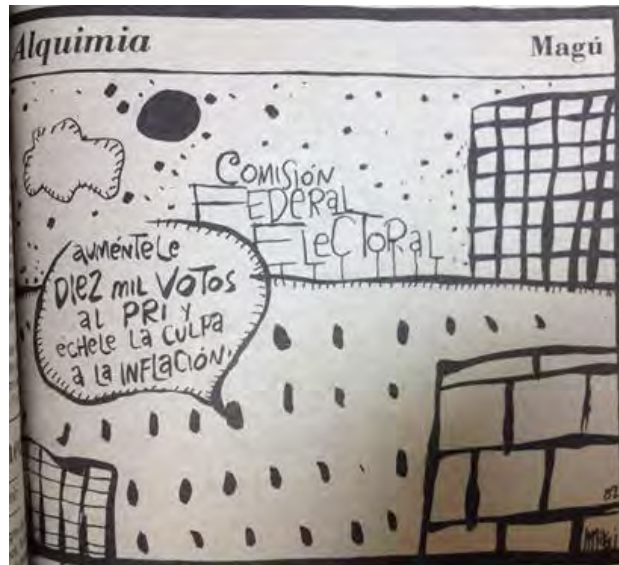 Alquimia
Magú
COMISIÓN
FEDERAL
ELECTORAL
AUMÉNTELE
DIEZ MIL VOTOS
AL PRI Y
ÉCHELE LA CULPA
A LA INFLACIÓN.
82
MAGÚ